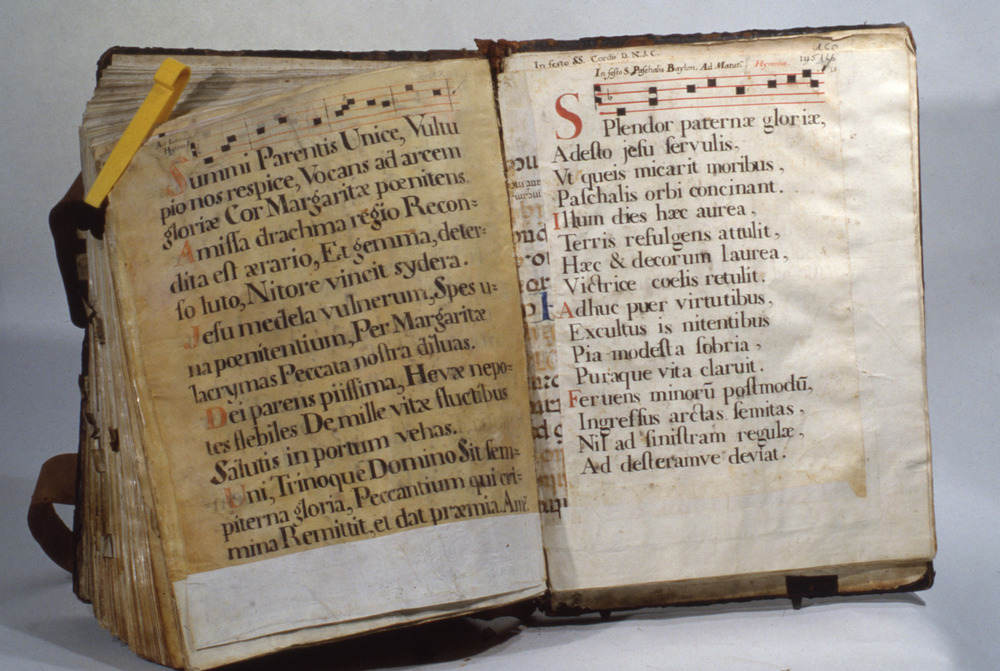 Summi Parentis Unice, Vultu
pio nos respice, Vocans ad arcem
gloriæ Cor Margaritæ pœnitens.
Amissa drachma regio Recon=
dita est ærario, Et gemma, deter=
so luto, Nitore vincit sydera.
Jesu medela vulnerum, Spes u=
na pœnitentium, Per Margaritæ
lacrymas Peccata nostra diluas.
Dei parens piissima, Hevæ nepo=
tes flebiles De mille vitæ fluctibus
Salutis in portum vehas.
Uni, Trinoque Domino Sit sem=
piterna gloria, Peccantium qui cri=
mina Remittit, et dat præmia. Am.
In festo SS. Cordis D. N. J. C.
160
In festo S. Paschalis Baylon. Ad Matut. Hymnus.
Splendor paternæ gloriæ,
Adesto jesu servulis,
Vt queis micarit moribus,
Paschalis orbi concinant.
Illum dies hæc aurea,
Terris refulgens attulit,
Hæc & decorum laurea,
Victrice coelis retulit.
Adhuc puer virtutibus,
Excultus is nitentibus
Pia modesta sobria,
Puraque vita claruit.
Feruens minorũ postmodũ,
Ingressus arctas semitas,
Nil ad sinistram regulæ,
Ad desteramve deviat.